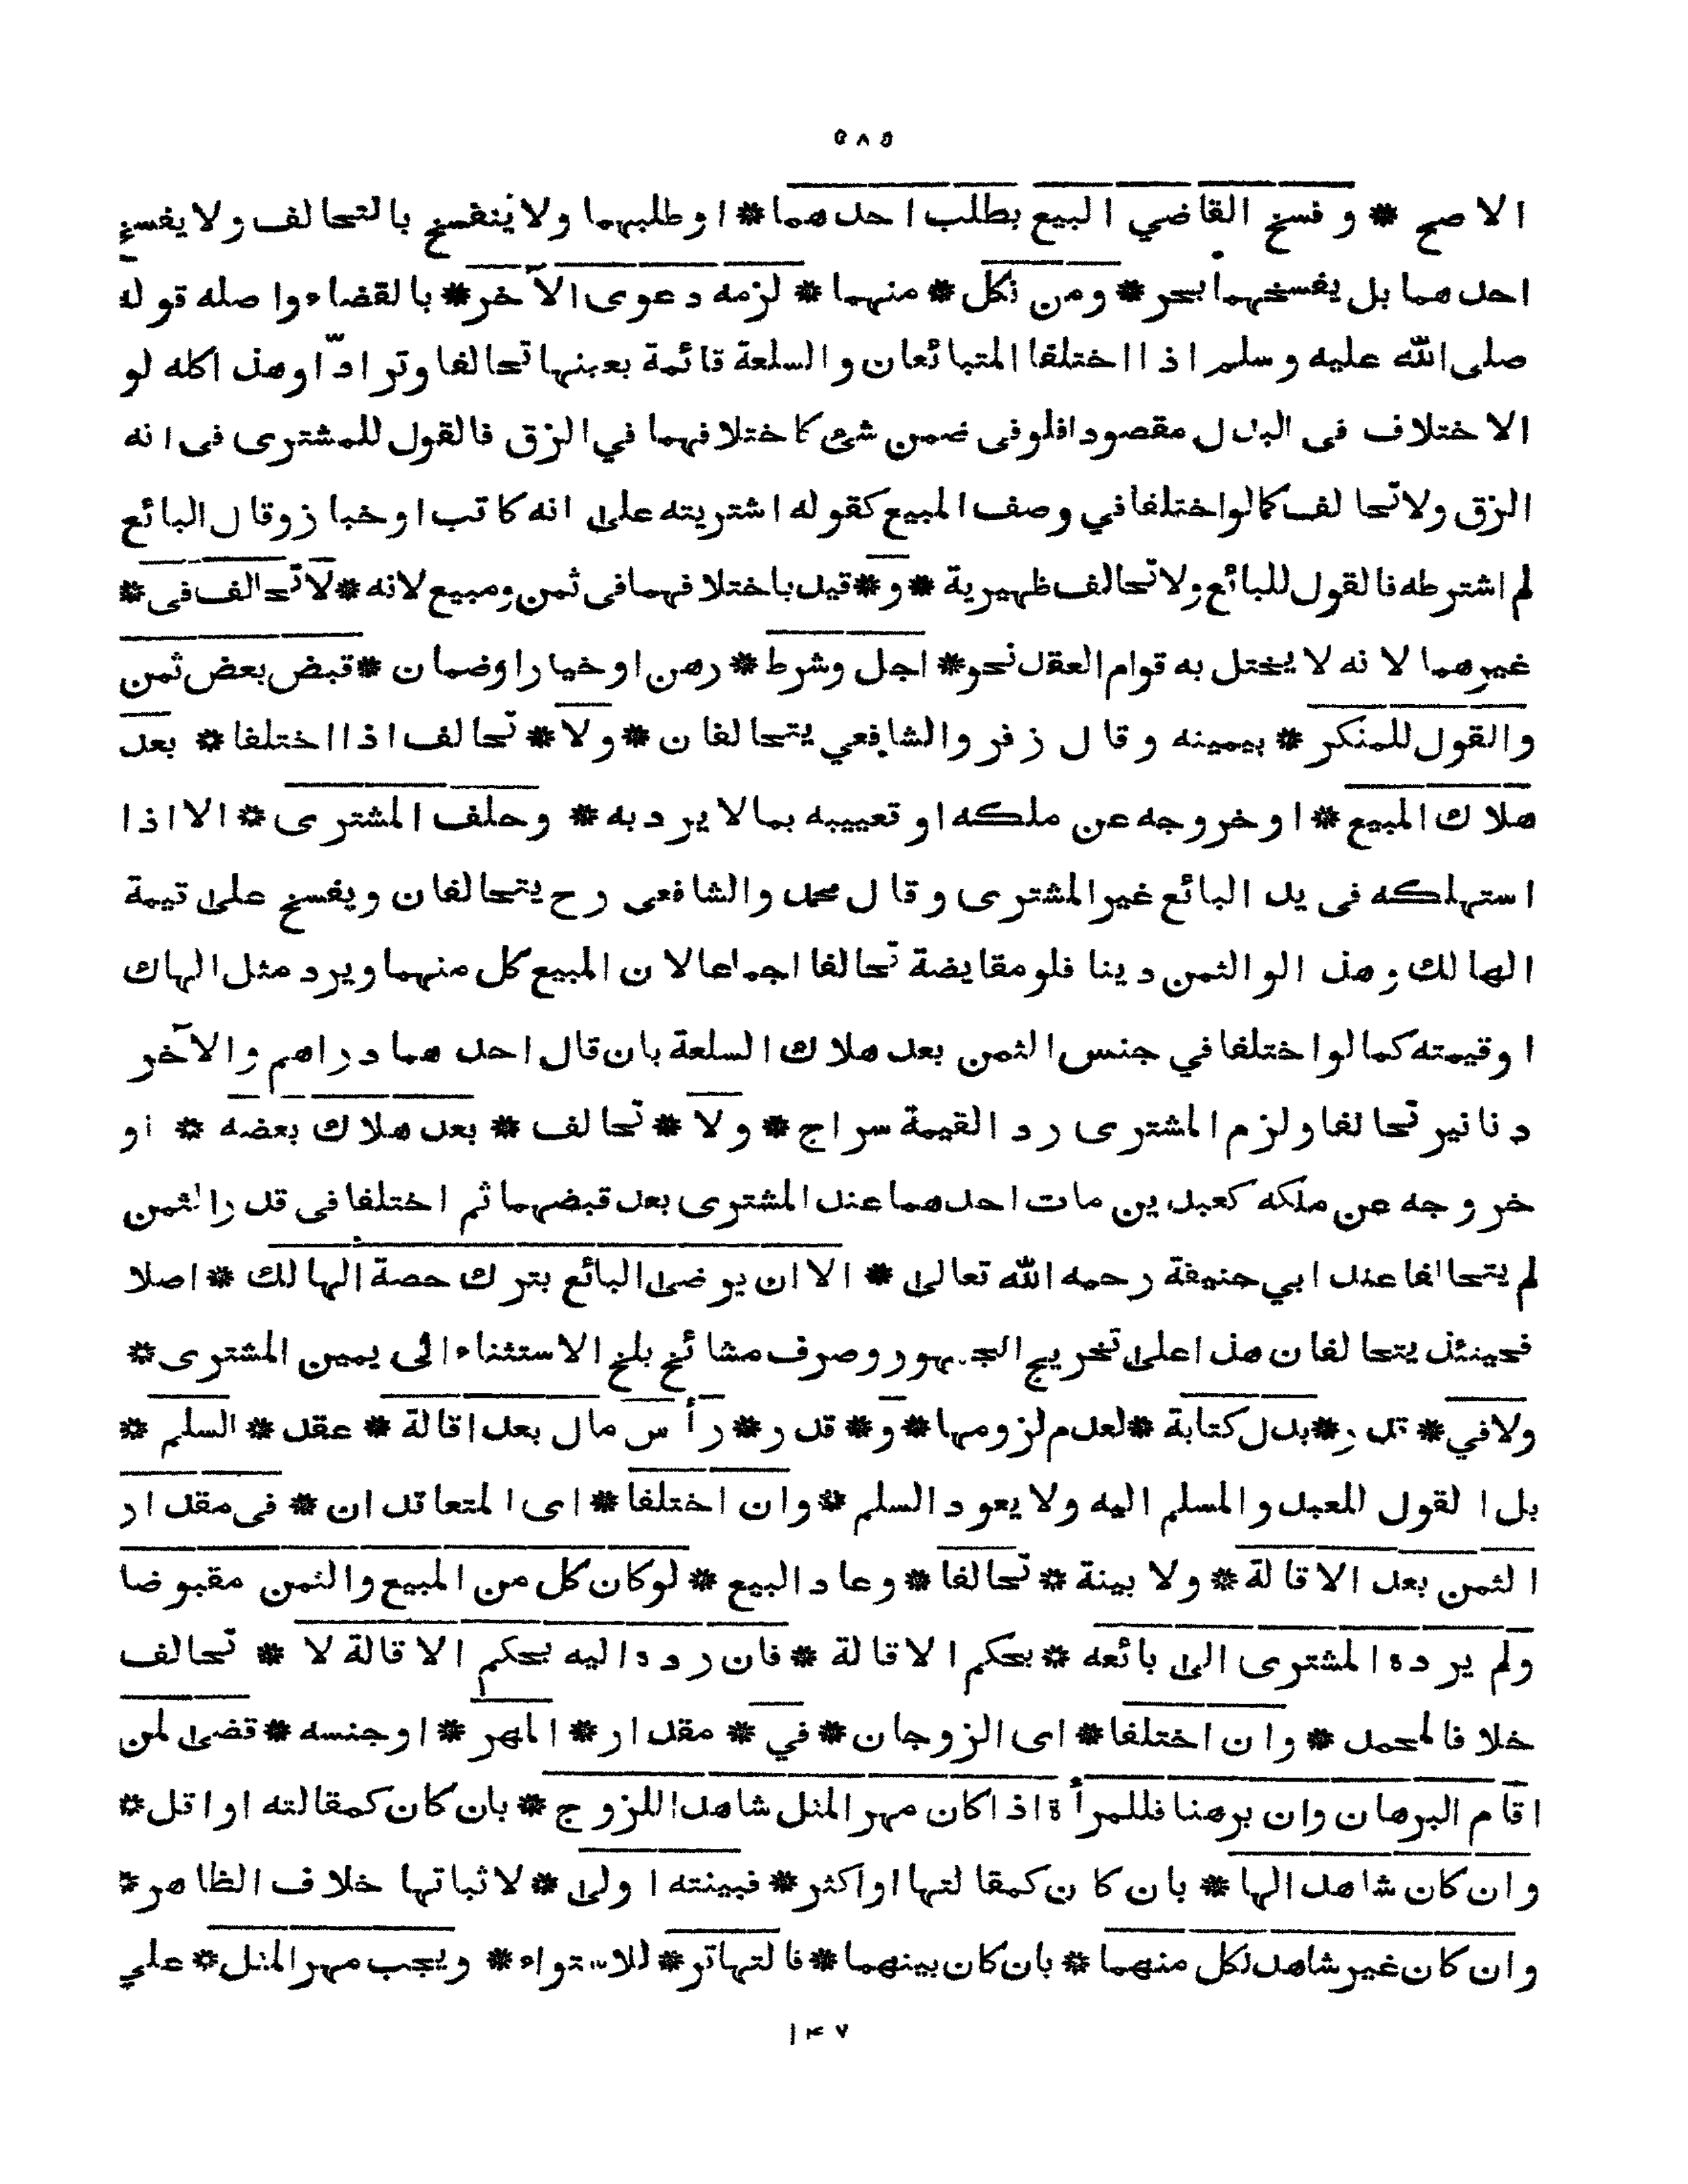 ٥٨٥
الاصح * وفسخ القاضي البيع بطلب احدهما * اوطلبهما ولاينفسخ بالتحالف ولايفسخ
احدهما بل يفسخهما بحر * ومن نكل * منهما * لزمه دعوى الآخر * بالقضاء واصله قوله
صلى الله عليه وسلم اذا اختلفا المتبائعان والسلعة قائمة بعينها تحالفا وترادّا وهذا كله لو
الاختلاف فى البدل مقصودا فلو فى ضمن شئ كاختلافهما في الزق فالقول للمشترى فى انه
الزق ولاتحالف كمالو اختلفا في وصف المبيع كقوله اشتريته على انه كاتب اوخباز وقال البائع
لم اشترطه فالقول للبائع ولاتحالف ظهيرية * و * قيد باختلافهما فى ثمن ومبيع لانه * لاتحالف فى *
غيرهما لانه لايختل به قوام العقد نحو * اجل وشرط * رهن اوخيار اوضمان * قبض بعض ثمن
والقول للمنكر * بيمينه وقال زفر والشافعي يتحالفان * ولا * تحالف اذا اختلفا * بعد
هلاك المبيع * اوخروجه عن ملكه اوتعييبه بمالايرد به * وحلف المشترى * الا اذا
استهلكه فى يد البائع غير المشترى وقال محمد والشافعى رح يتحالفان ويفسخ على قيمة
الهالك وهذا لو الثمن دينا فلو مقايضة تحالفا اجماعا لان المبيع كل منهما ويرد مثل الهاك
اوقيمته كمالو اختلفا في جنس الثمن بعد هلاك السلعة بان قال احدهما دراهم والآخر
دنانير تحالفا ولزم المشترى رد القيمة سراج * ولا * تحالف * بعد هلاك بعضه * او
خروجه عن ملكه كعبدين مات احدهما عند المشترى بعد قبضهما ثم اختلفا فى قدر الثمن
لم يتحالفا عند ابي حنيفة رحمه الله تعالى * الا ان يرضى البائع بترك حصة الهالك * اصلا
فحينئذ يتحالفان هذا على تخريج الجمهور وصرف مشائخ بلخ الاستثناء الى يمين المشترى *
ولافي * قدر * بدل كتابة * لعدم لزومها * و * قدر * رأس مال بعد اقالة * عقد * السلم *
بل القول للعبد والمسلم اليه ولايعود السلم * وان اختلفا * اى المتعاقدان * فى مقدار
الثمن بعد الاقالة * ولا بينة * تحالفا * وعاد البيع * لوكان كل من المبيع والثمن مقبوضا
ولم يرده المشترى الى بائعه * بحكم الاقالة * فان رده اليه بحكم الاقالة لا * تحالف
خلافا لمحمد * وان اختلفا * اى الزوجان * في * مقدار * المهر * اوجنسه * قضى لمن
اقام البرهان وان برهنا فللمرأة اذا كان مهر المثل شاهدا للزوج * بان كان كمقالته اواقل *
وان كان شاهدا لها * بان كان كمقالتها اواكثر * فبينته اولى * لاثباتها خلاف الظاهر *
وان كان غير شاهد لكل منهما * بان كان بينهما * فالتهاتر * للاستواء * ويجب مهر المثل * علي
١۴٧